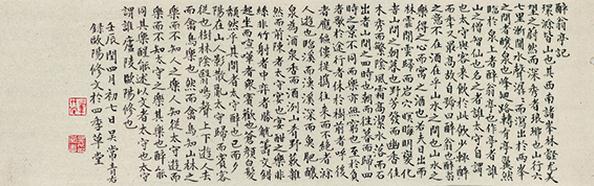 醉翁亭記
環滁皆山也其西南諸峯林壑尤美
望之蔚然而深秀者琅琊也山行六
七里漸聞水聲潺潺而瀉出於兩峯
之間者釀泉也峰回路轉有亭翼然
臨於泉上者醉翁亭也作亭者誰
山之僧智僊也名之者誰太守自謂
也太守與客來飲於此飲少輒醉
而年又最高故自號曰醉翁也醉翁
之意不在酒在乎山水之間也山水之
樂得之心而寓之酒也若夫日出而
林霏開雲歸而巖穴暝晦明變化
者山間之朝暮也野芳發而幽香佳
木秀而繁陰風霜高潔水落而石
出者山間之四時也朝往暮而歸四
時之景不同而樂亦無窮也至於負
者歌於途行者休於樹前者呼後
者應傴僂提攜往來而不絕者滁
人遊也臨溪而漁溪深而魚肥釀
泉為酒泉香而酒洌山肴野蔌雜
然而前陳者太守宴也宴酣之樂非
絲非竹射者中弈者勝觥籌交錯
起坐而諠譁者衆賓歡也蒼顏白髮
頹然乎其間者太守醉也已而夕
陽在山人影散亂太守歸而賓客
從也樹林陰翳鳴聲上下遊人去
而禽鳥樂也然而禽鳥知山林之
樂而不知人之樂人知從太守遊而
樂而不知太守之樂其樂也醉能
同其樂醒能述以文者太守也太守
謂誰廬陵歐陽修也
壬辰閏四月初七日吳常
錄歐陽修文於四季草堂